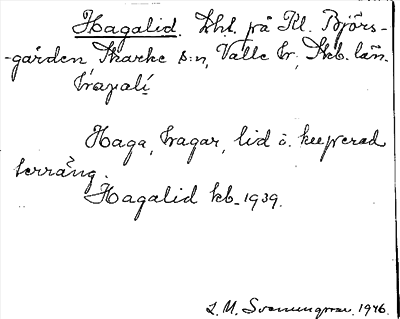 Hagalid. Lht. på Kl. Björs-
-gården Skarke s:n, Valle hr, Skb. län.
hạgalí

Haga, hagar, lid o. kuperad
terräng.
Hagalid kb. 1939.

1946.